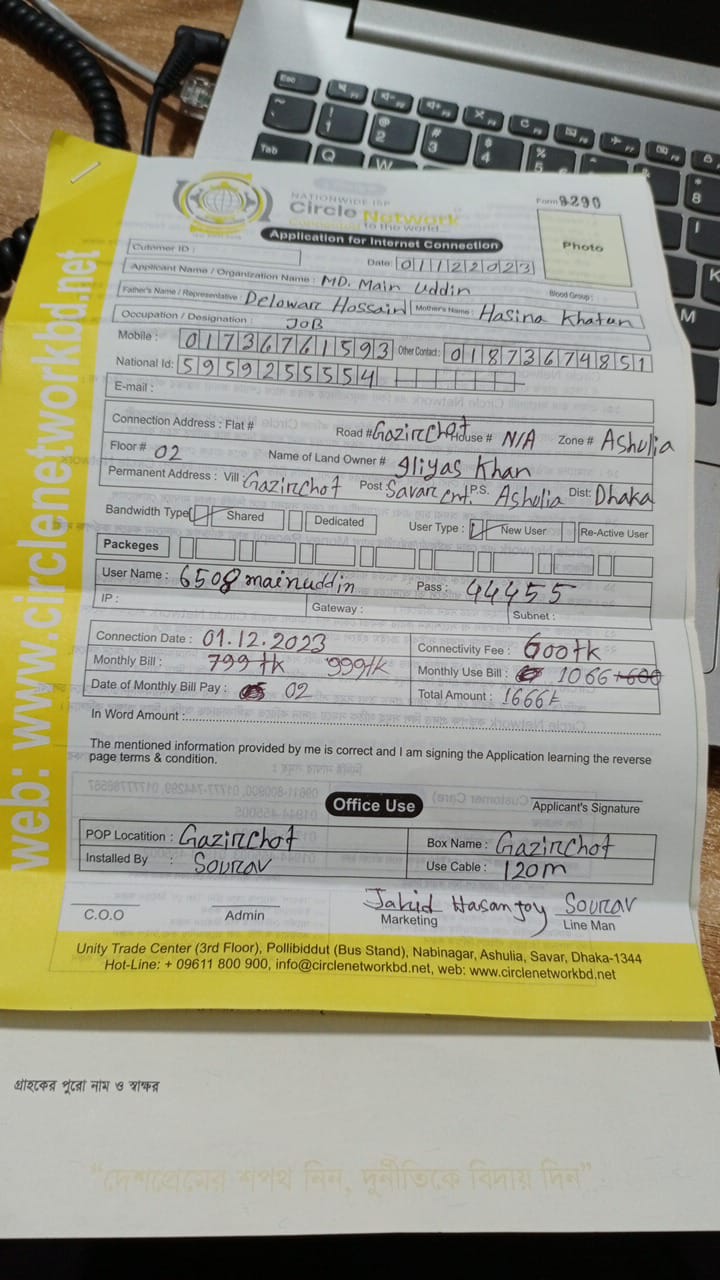 NATIONWIDE ISP
Circle Network
Connected to the world...
Form 8290
Application for Internet Connection
Photo
Cutomer ID :
Date: 01122023
Applicant Name / Organization Name : MD. Main Uddin
Blood Group :
Father's Name / Representative : Delowarr Hossain Mother's Name : Hasina Khatun
Occupation / Designation : JOB
Mobile : 01736761593 Other Contact : 01873674851
National Id: 5959255554
E-mail :
Connection Address : Flat # Road # Gazirchot House # N/A Zone # Ashulia
Floor # 02 Name of Land Owner # Iliyas Khan
Permanent Address : Vill Gazirchot Post Savar Cnt. P.S. Ashulia Dist: Dhaka
Bandwidth Type Shared Dedicated User Type : New User Re-Active User
Packeges
User Name : 6508mainuddin Pass : 44455
IP : Gateway : Subnet :
Connection Date : 01.12.2023 Connectivity Fee : 600tk
Monthly Bill : 799 tk 999tk Monthly Use Bill : 1066 +600
Date of Monthly Bill Pay : 02 Total Amount : 1666t
In Word Amount :
The mentioned information provided by me is correct and I am signing the Application learning the reverse
page terms & condition.
Office Use
Applicant's Signature
POP Locatition : Gazirchot Box Name : Gazirchot
Installed By : Sourav Use Cable : 120m
Jahid Hasan Joy Sourav
C.O.O Admin Marketing Line Man
Unity Trade Center (3rd Floor), Pollibiddut (Bus Stand), Nabinagar, Ashulia, Savar, Dhaka-1344
Hot-Line: + 09611 800 900, info@circlenetworkbd.net, web: www.circlenetworkbd.net
web: www.circlenetworkbd.net
গ্রাহকের পুরো নাম ও স্বাক্ষর
"দেশপ্রেমের শপথ নিন, দুর্নীতিকে বিদায় দিন"
Esc
Tab
Q
W